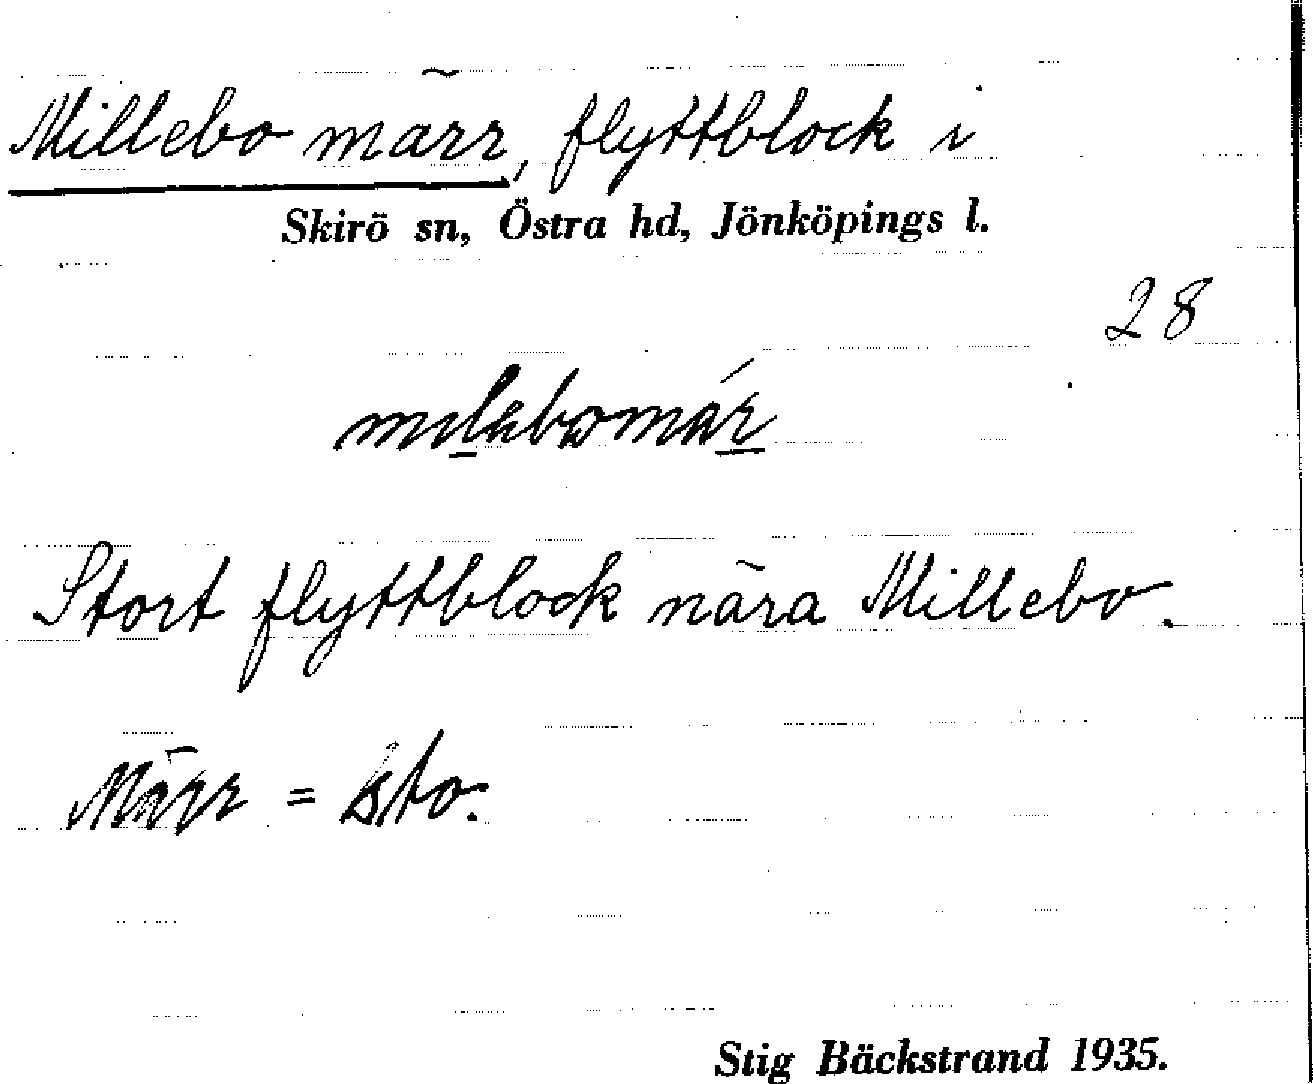 Millebo märr, flyttblock i
Skirö sn, Östra hd, Jönköpings l.
28
Stort flyttblock nära Millebo.
Märr = sto.
Stig Bäckstrand 1935.